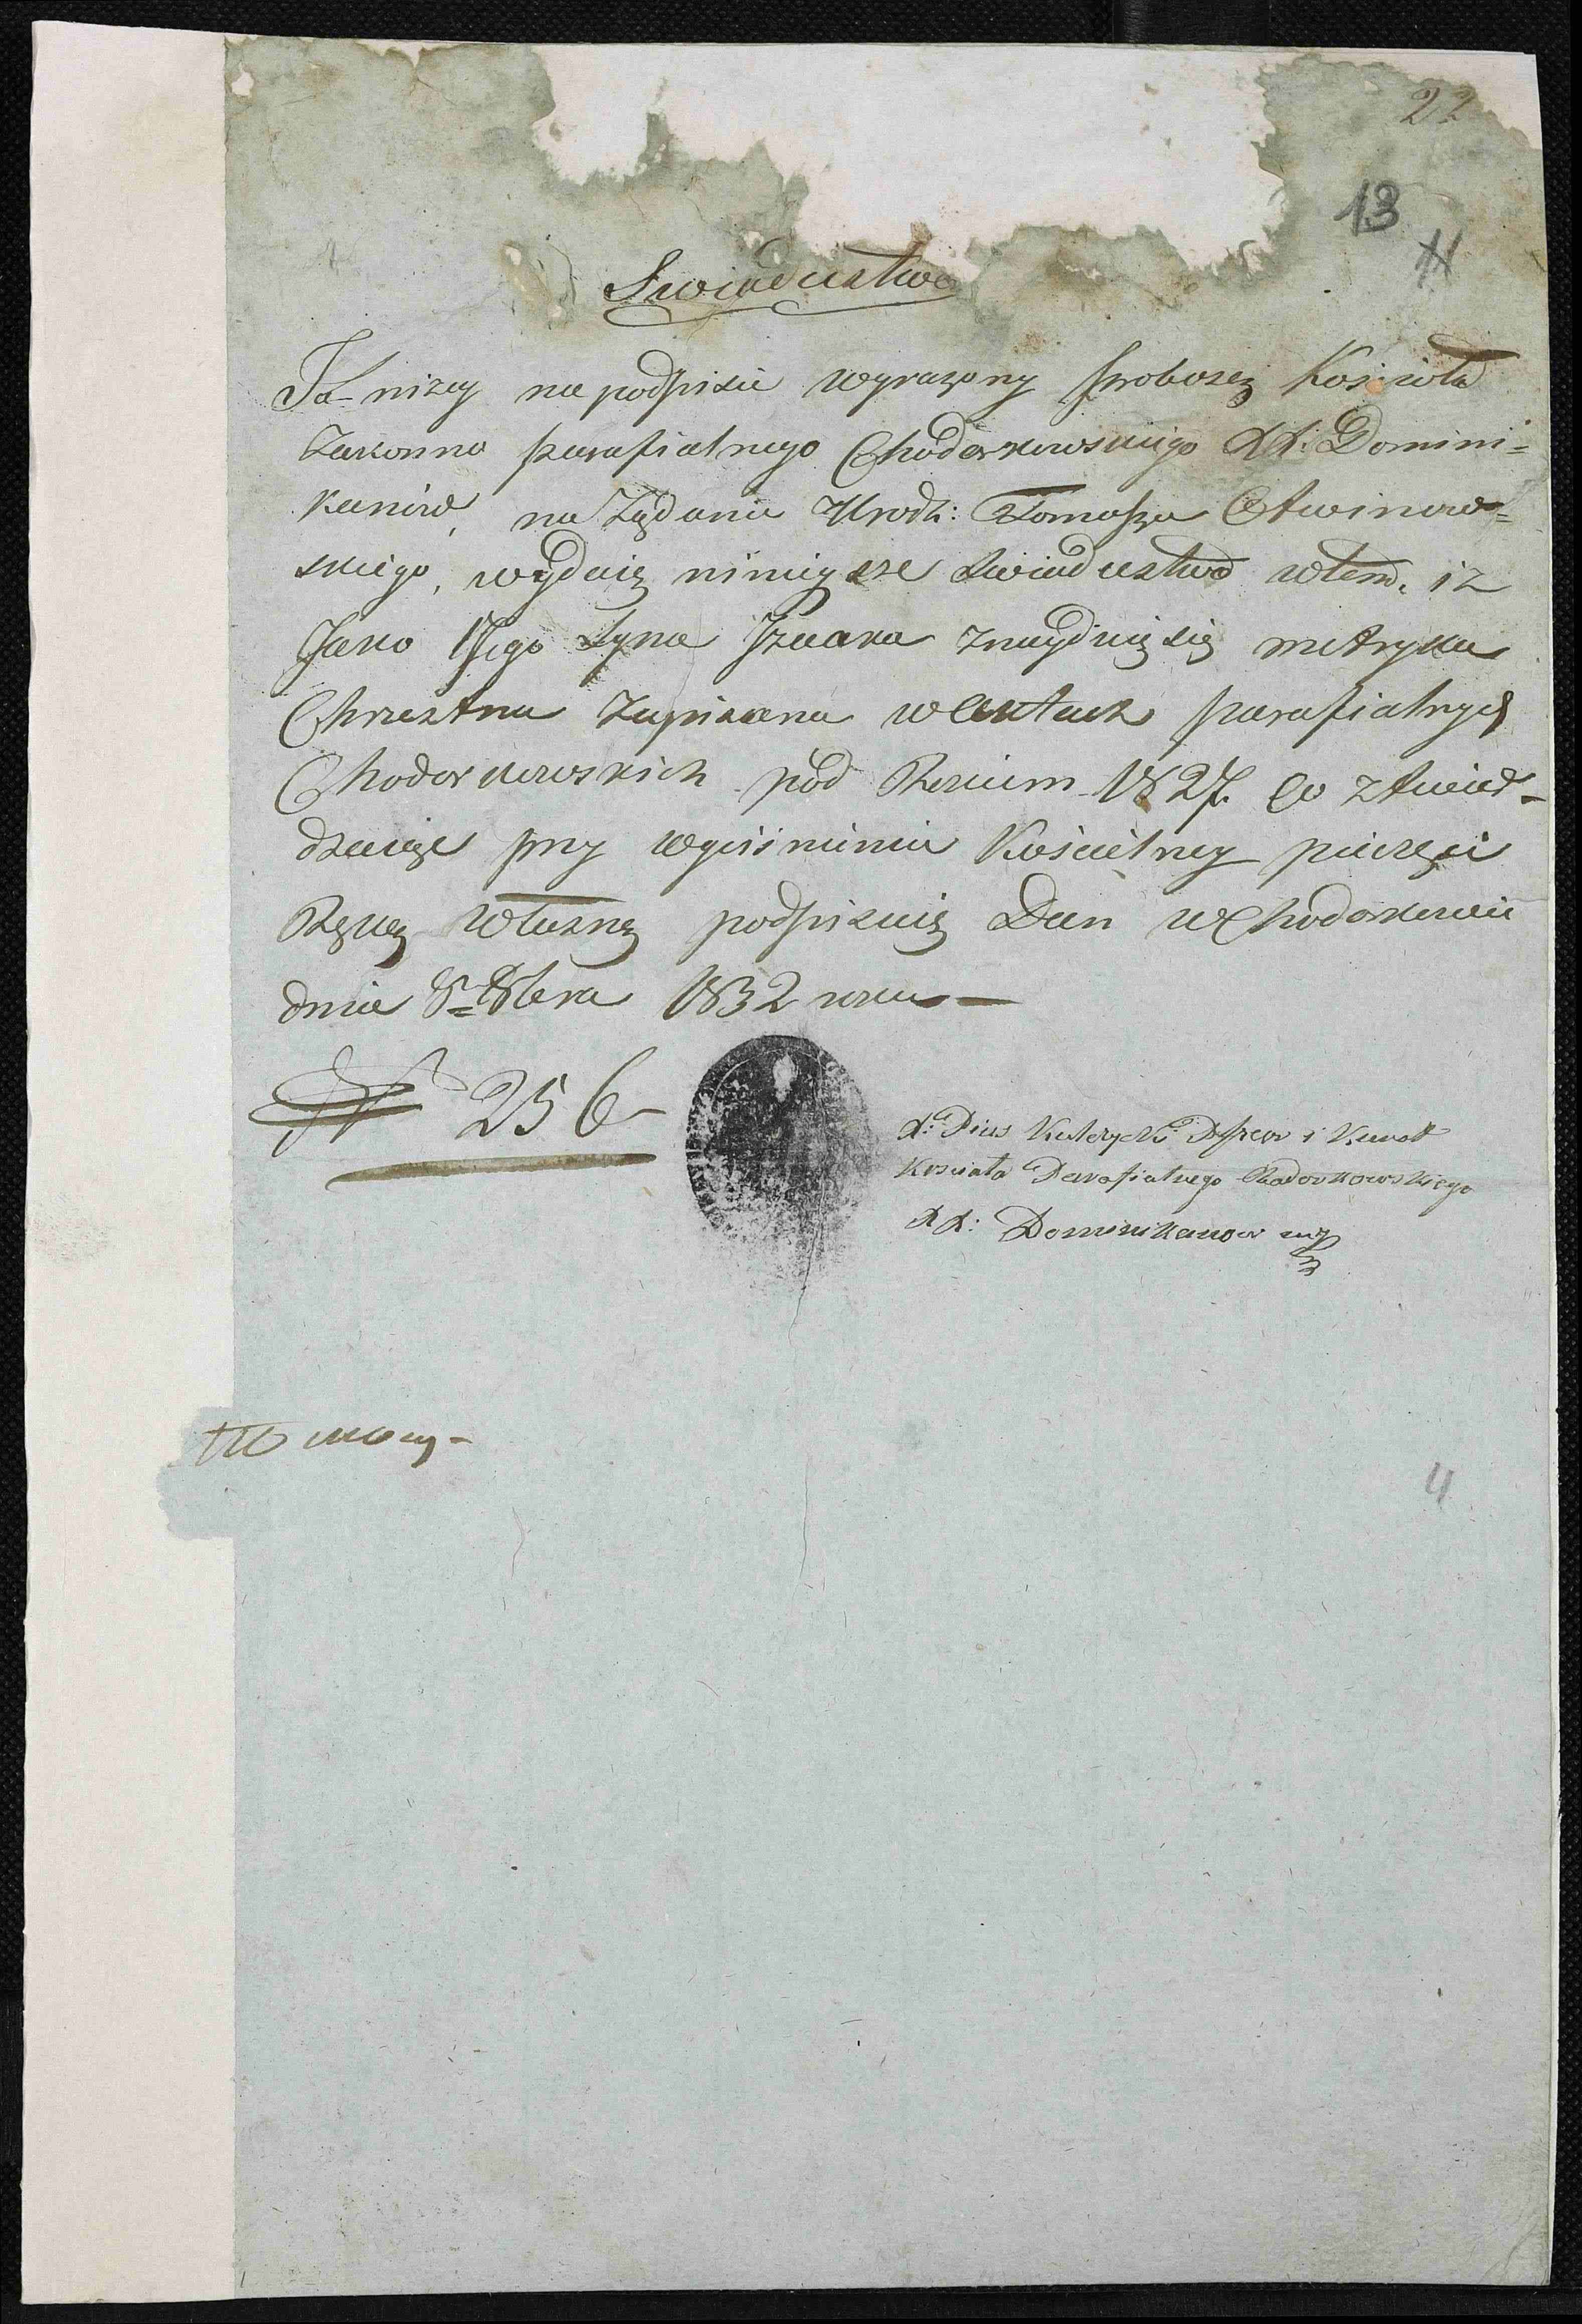 22
13
Swiadectwo
Ja niżey na podpisie wyrażony proboszcz Kościoła
Zakonno parafialnego Chodorkowskiego XX: Domini=
kanów, na żądanie Urodz: Tomasza Otwinow=
skiego, wydaię ninieysze Swiadectwo wtem, iż
Jako Jego Syna Izaaka znayduię się metryka
Chrzestna zapisana w Aktach parafialnych
Chodorkowskich pod Rokiem 1827. co ztwier-
dzaiąc przy wyciśnieniu Kościelney pieczęci
Ręką własną podpisuię Dan w Chodorkowie
dnia 8bra 1832 roku
Nr 256
X: Pius Przeor i Kurat
Kościoła Parafialnego Chodorkowskiego
XX: Dominikanow mp
4